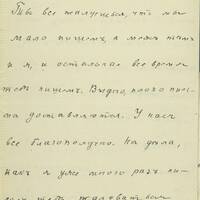 Ты все жалуешься, что мы
мало пишем, а между тем
и я, и остальные все время
тебе пишем. Видно, плохо пись-
ма доставляются. У нас
все благополучно. На дела,
как я уже много раз пи-
тебе, жаловаться